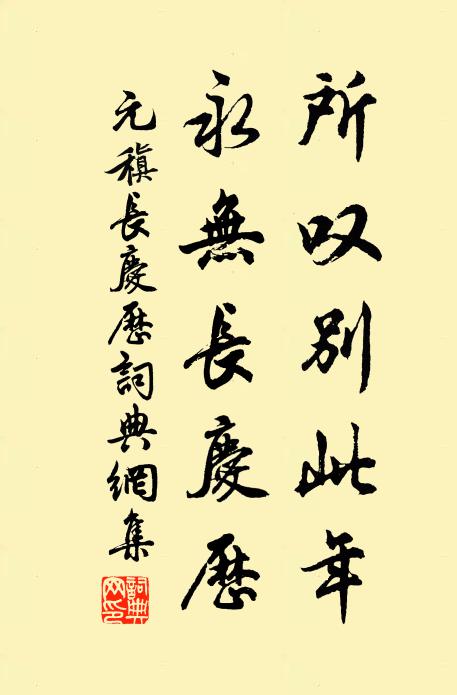 所叹別此年
永無長慶歷
元稹長慶歷詞典網集
詞典网印